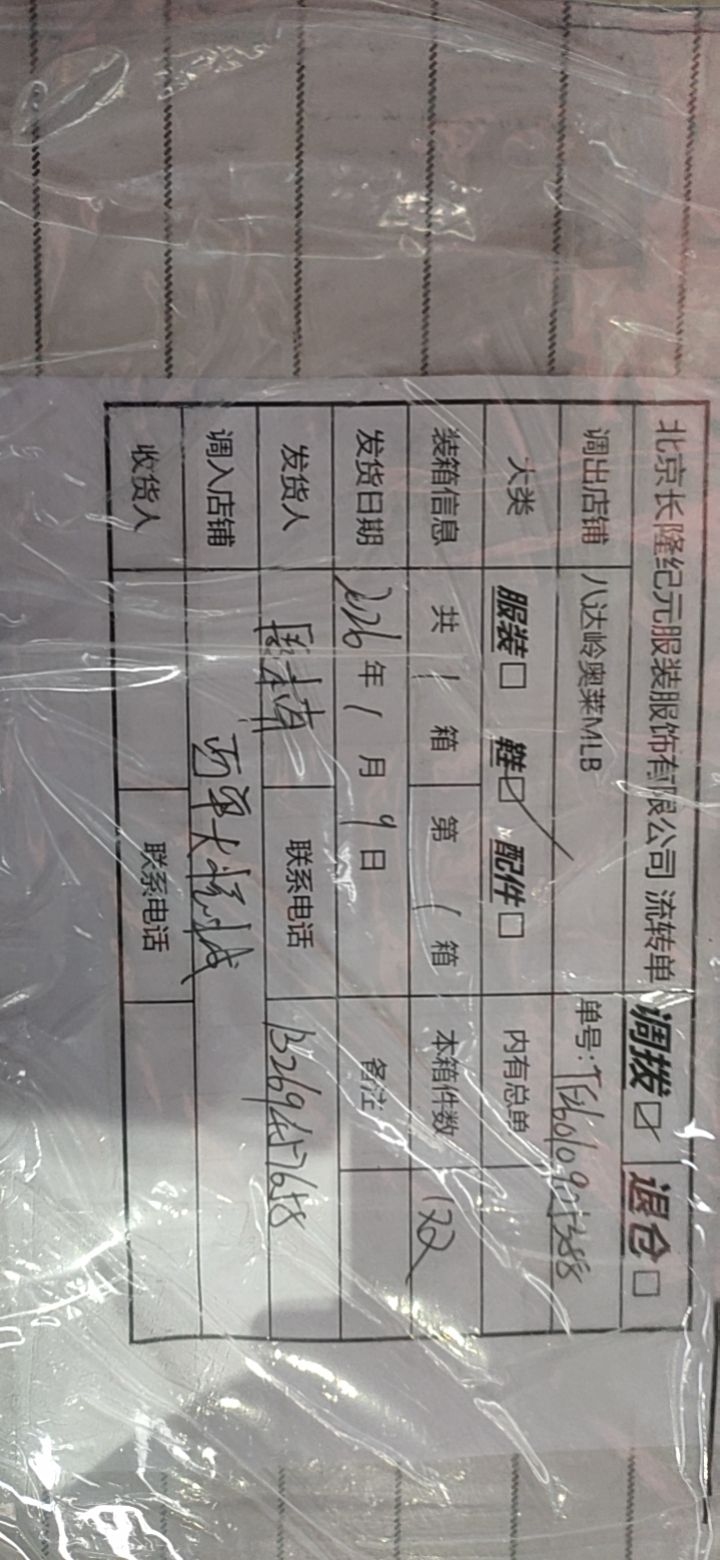 北京长隆纪元服装服饰有限公司 流转单 调拨☑ 退仓□
调出店铺 八达岭奥莱MLB 单号:
大类 服装□ 鞋☑ 配件□ 内有总单
装箱信息 共 1 箱 第 1 箱 本箱件数 122
发货日期 2026 年 1 月 9 日 备注
发货人 联系电话
调入店铺
收货人 联系电话